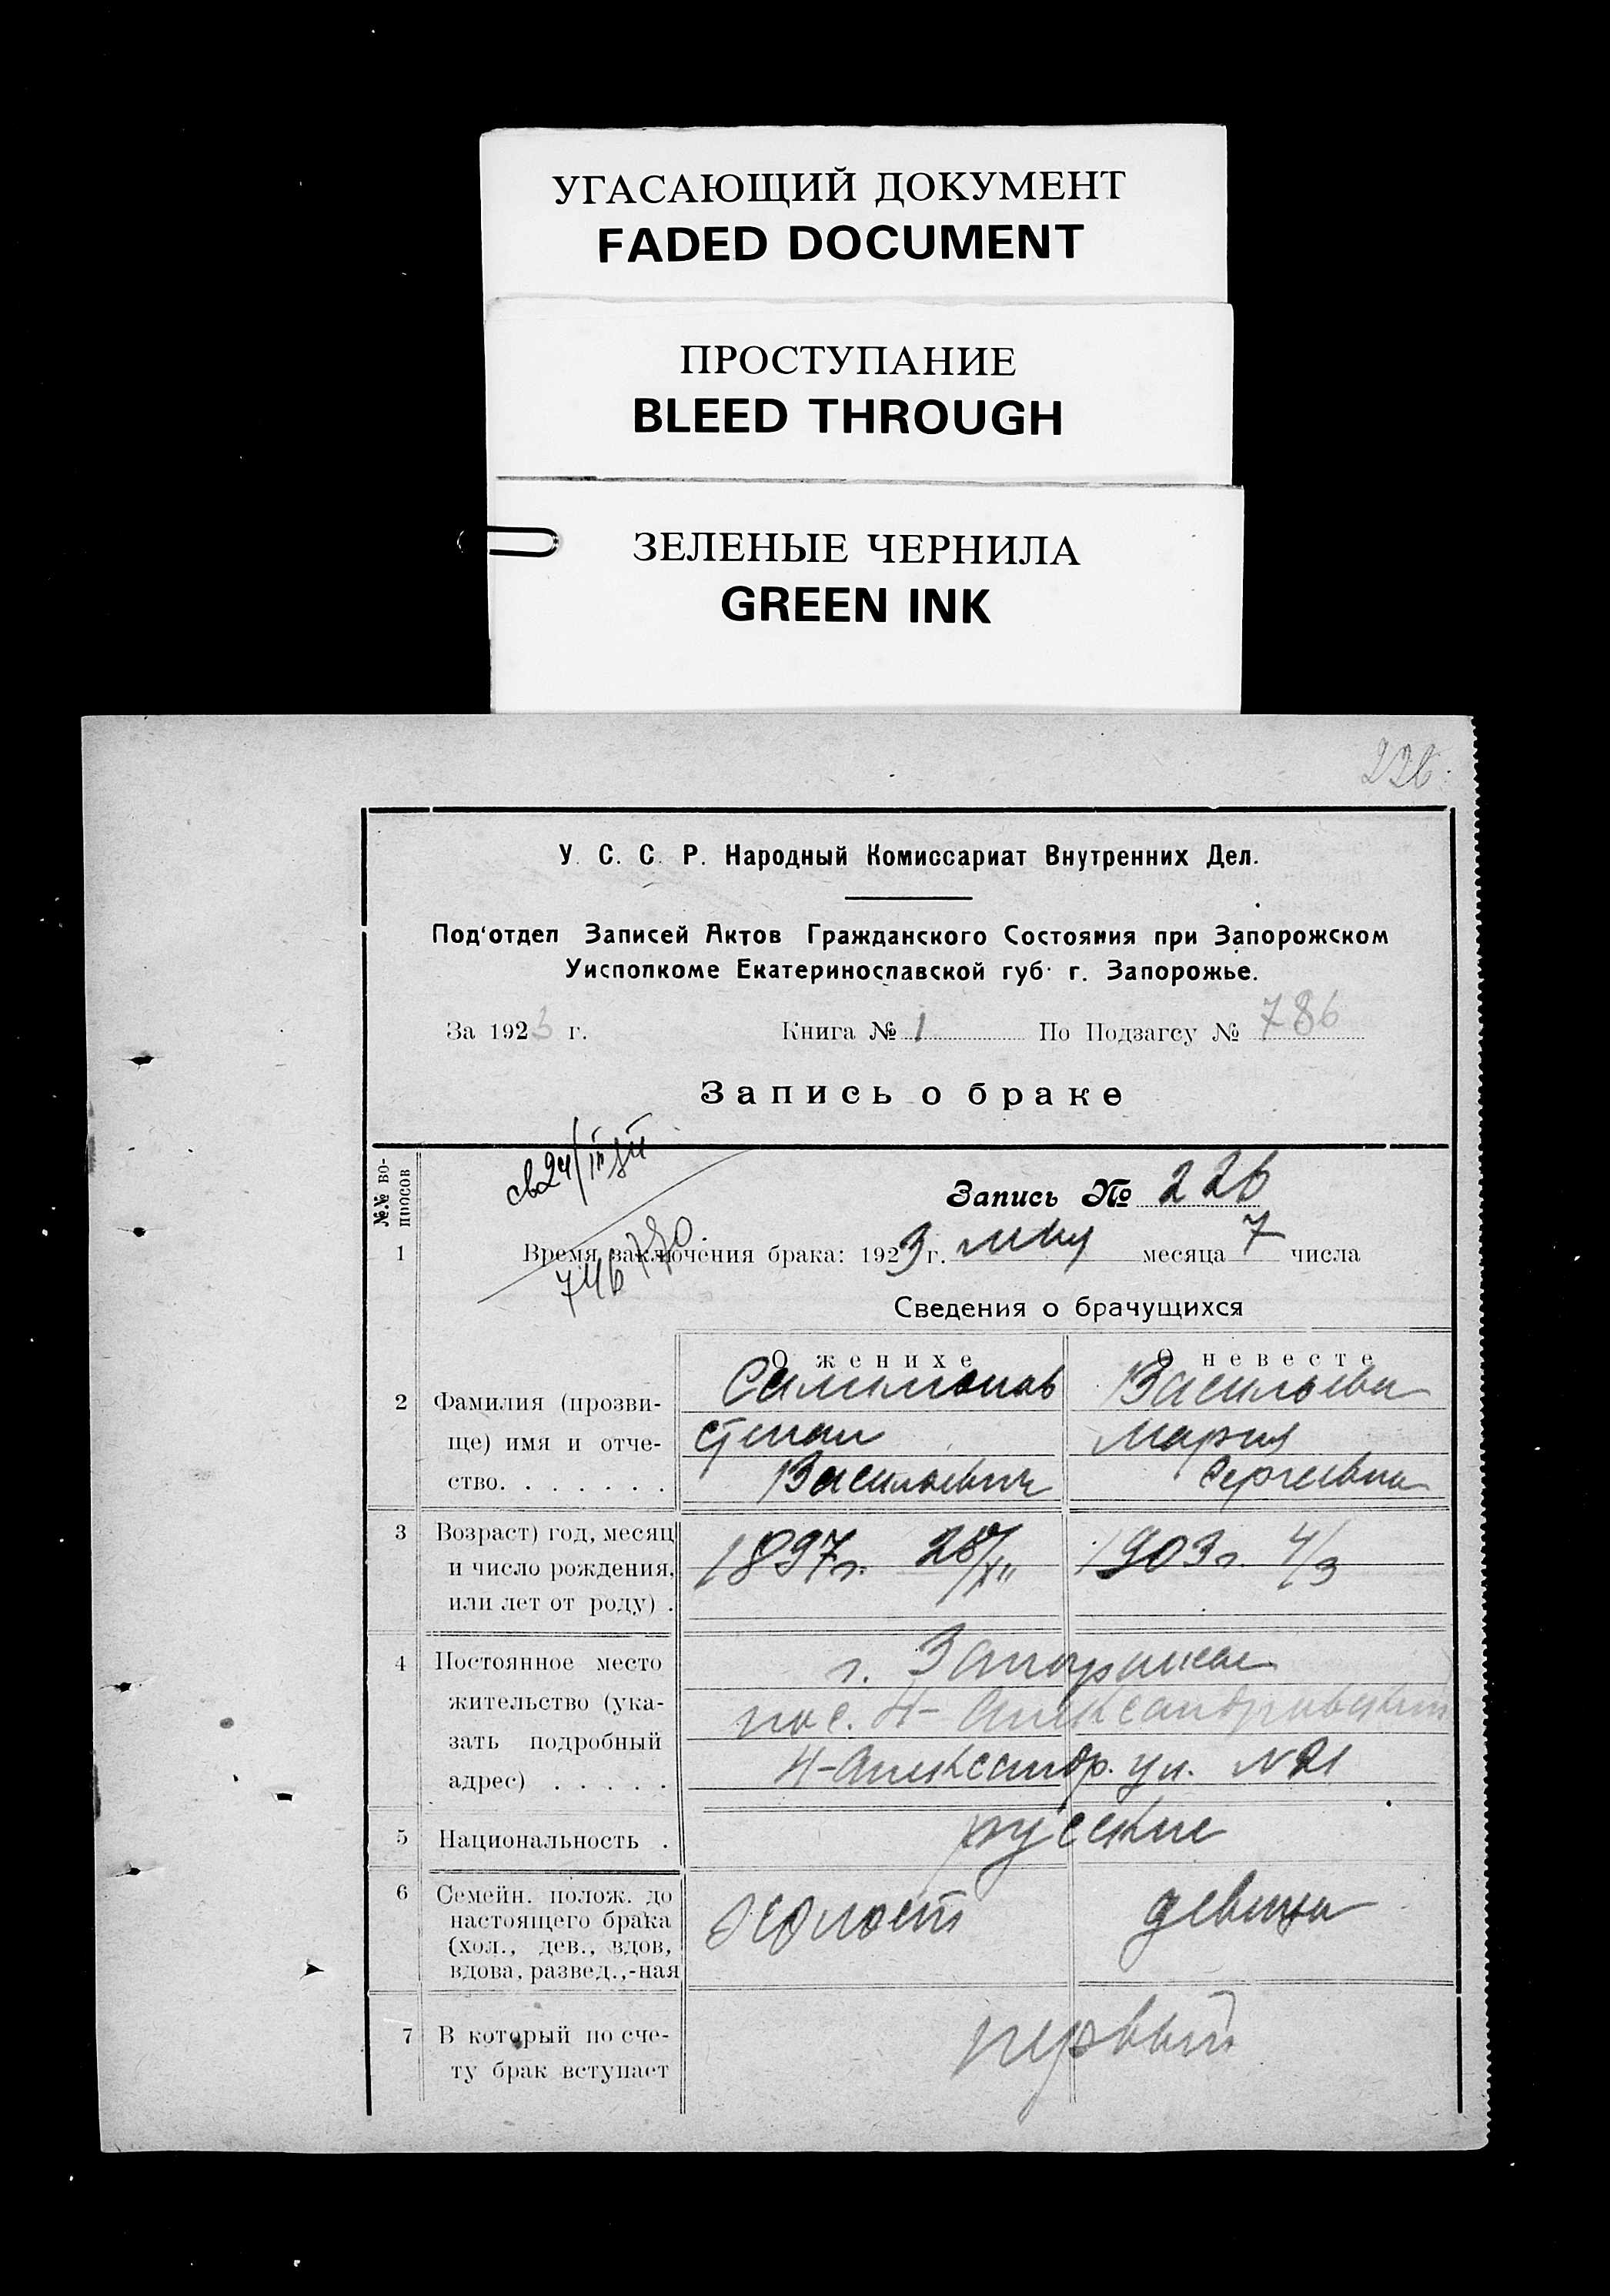 УГАСАЮЩИЙ ДОКУМЕНТ
FADED DOCUMENT
ПРОСТУПАНИЕ
BLEED THROUGH
ЗЕЛЕНЫЕ ЧЕРНИЛА
GREEN INK
226.
У. С. С. Р. Народный Комиссариат Внутренних Дел.
Под'отдел Записей Актов Гражданского Состояния при Запорожском
Уисполкоме Екатеринославской губ. г. Запорожье.
За 1923 г. Книга № 1 По Подзагсу № 786
Запись о браке
№№ вопросов
Запись № 226
1 Время заключения брака: 1923 г. мая месяца 7 числа
746
Сведения о брачущихся
О женихе О невесте
2 Фамилия (прозви- Васильева
ще) имя и отче- Степан Мария
ство. . . . . . . Васильевич Сергеевна
3 Возраст) год, месяц 1897г. 28/XII 1903г. 4/3
и число рождения,
или лет от роду) .
4 Постоянное место г. Запорожье
жительство (ука- пос. Н-Александровский
зать подробный Н-Александр. ул. №21
адрес) . . . . .
5 Национальность . русские
6 Семейн. полож. до холост девица
настоящего брака
(хол., дев., вдов,
вдова, развед.,-ная
7 В который по сче- первый
ту брак вступает